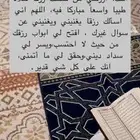 طيبا واسعا مباركا فيه، اللهم اني
اسألك رزقا يغنيني ويغنيني عن
سؤال غيرك . افتح لي ابواب رزقك
من حيث لا احتسب،ويسر لي
سداد ديني،وحقق لي ما اتمنى،
انك على كل شي قدير.